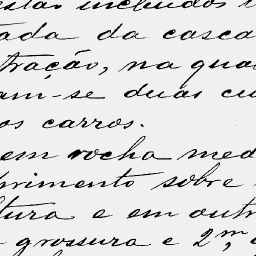 estas incluidos
tada da casca
tração, na qual
am-se duas cu
os carros.
em rocha med
primento sobre
ltura e em outr
grossura e 2m,